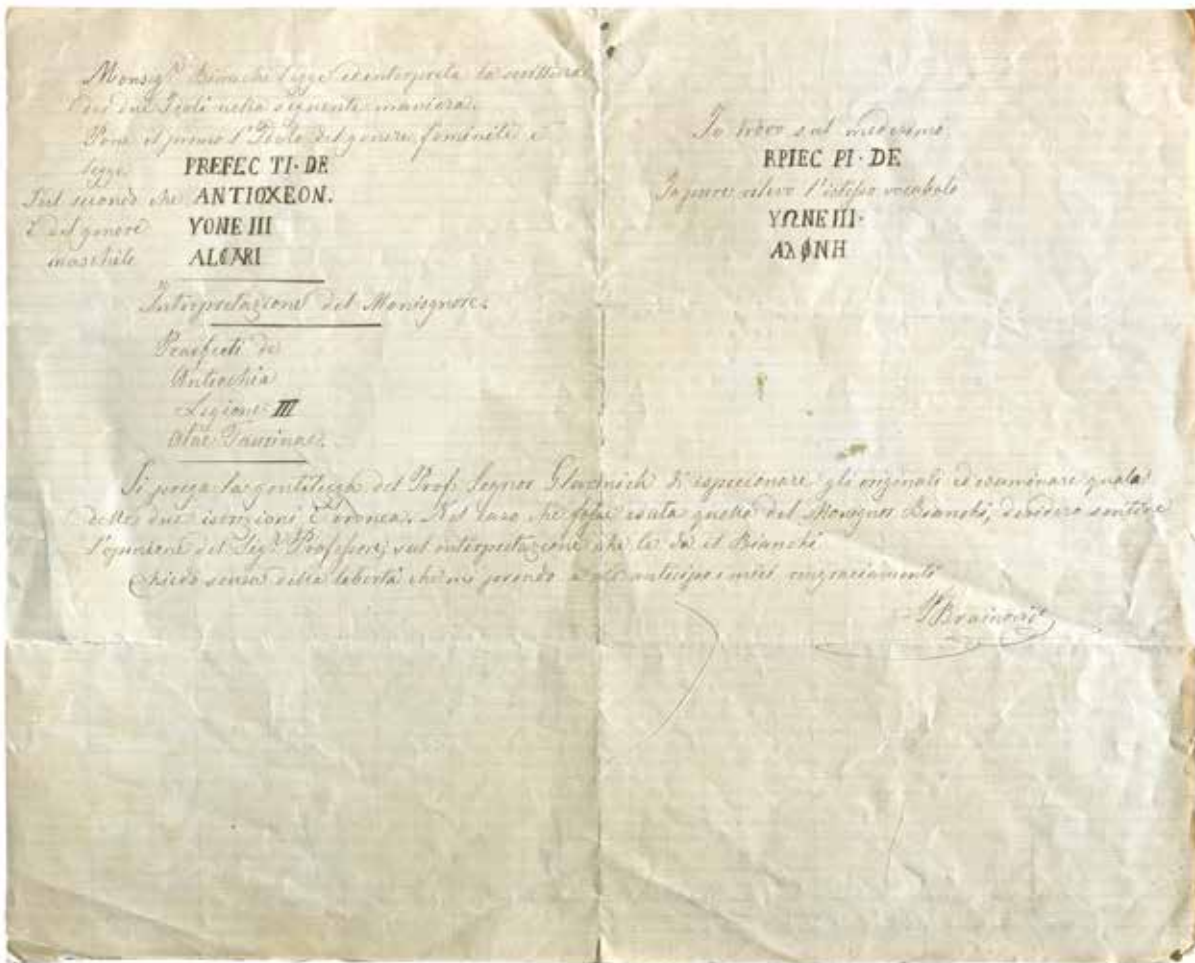 Monsig.r Bianchi legge ed interpreta la scrittura
dei due Idoli nella seguente maniera.
Pone il primo l'Idolo del genere feminile e
legge PREFEC TI· DE
Sul secondo che ANTIOXEON.
è del genere YONE III
maschile ALCARI
Interpretazione del Monsignore.
Praefecti de
Antiochia
Legione III
Alae
Io trovo sul medesimo
RPIEC PI· DE
Io pure rilevo l'istesso vocabolo
YΩNE III·
Αλ φΝΗ
Si prega la gentilezza del Prof. Segnor Glavinich d'ispecionare gli originali ed esaminare quala
delle due iscrizioni è eronea. Nel caso che fosse esata quella del Monsignor Bianchi, desidero sentire
l'opinione del Sigr. Professore, sul interpretazione che le da il Bianchi
Chiedo scusa della libertà che mi prendo anticipo i miei ringraciamenti